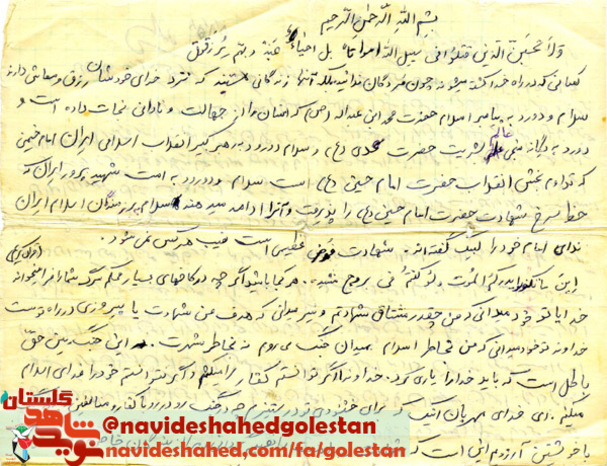 بسم الله الرحمن الرحیم
ولا تحسبن الذین قتلوا فی سبیل الله امواتا بل احیاء عند ربهم یرزقون
کسانی که در راه خدا کشته میشوند چون مردگان ندانید بلکه آنها زندگانی هستند که نزد خدای خودشان رزق و معاش دارند
سلام و درود به پیامبر اسلام حضرت محمد ابن عبدالله (ص) که انسان را از جهالت و نادانی نجات داده است و
درود به یگانه منجی عالم بشریت حضرت مهدی (عج) و سلام و درود به رهبر کبیر انقلاب اسلامی ایران امام خمینی
که تداوم بخش انقلاب حضرت امام حسین (ع) است سلام و درود به امت شهید پرور ایران که
خط سرخ شهادت حضرت امام حسین (ع) را پذیرفت و آنرا ادامه میدهند سلام به رزمندگان اسلام ایران
ندای امام خود را لبیک گفته‌اند. شهادت فیض عظیمی است نصیب هر کس نمی شود.
این ما تکونوا یدرککم الموت ولو کنتم فی بروج مشیده. هر کجا باشید اگر چه در کاخهای بسیار محکم مرگ شما را فرا میخواند
خدایا تو خود میدانی که من چقدر مشتاق شهادتم و نیز میدانی که هدف من شهادت یا پیروزی در راه توست
خداوندا تو خود میدانی که من بخاطر اسلام بمیدان جنگ می روم نه بخاطر شهرت. این جنگ بین حق
باطل است که باید خدا را یاری کرد. خداوندا اگر توانستم کفار را میکشم و اگر نتوانستم خود را فدای اسلام
میکنم. ای خدای مهربان
با خود آرزویم این است که
نوید شاهد گلستان
@navideshahedgolestan
navideshahed.com/fa/golestan